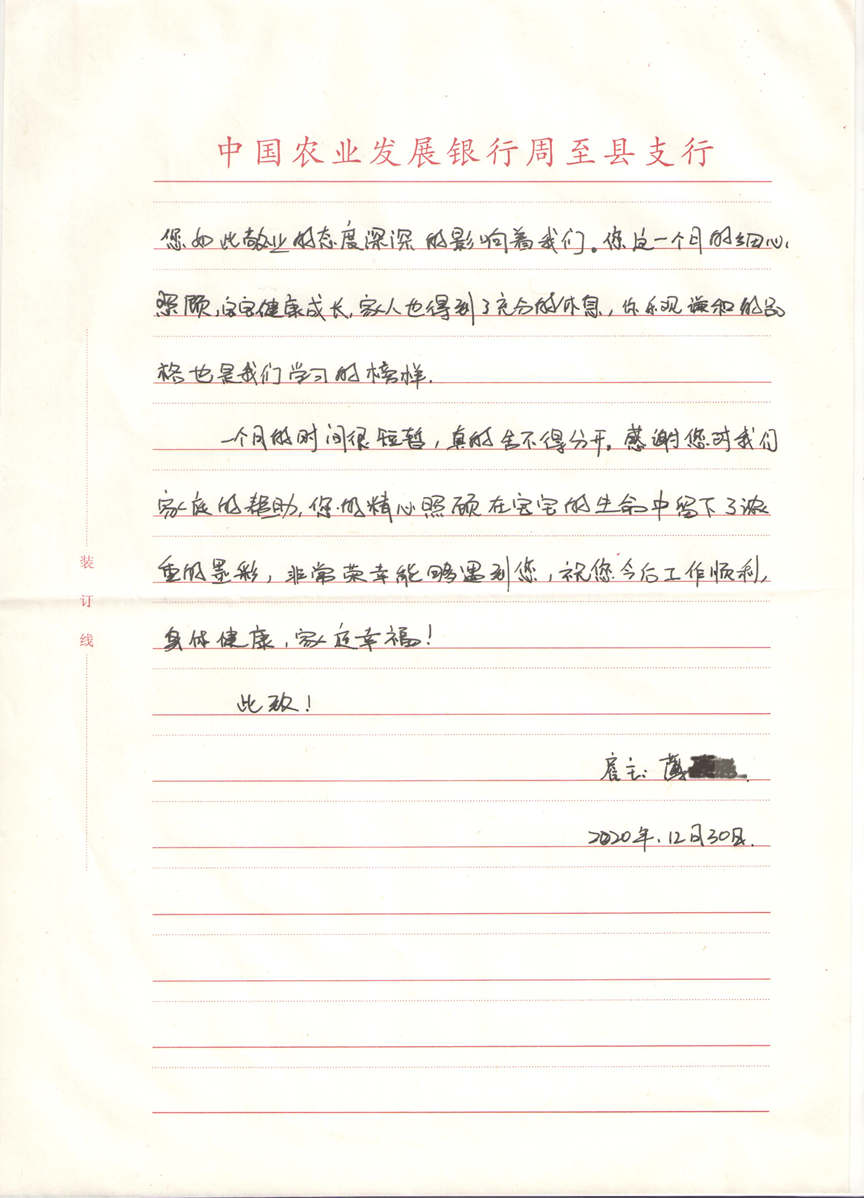 中国农业发展银行周至县支行
您如此敬业的态度深深的影响着我们。您这一个月的细心
照顾,宝宝健康成长,家人也得到了充分的休息,你乐观谦和的品
格也是我们学习的榜样.
一个月的时间很短暂,真的舍不得分开。感谢您对我们
家庭的帮助,您的精心照顾在宝宝的生命中留下了浓
重的墨彩,非常荣幸能够遇到您,祝您今后工作顺利,
身体健康,家庭幸福!
此致!
雇主:
2020年.12月30日.
装订线